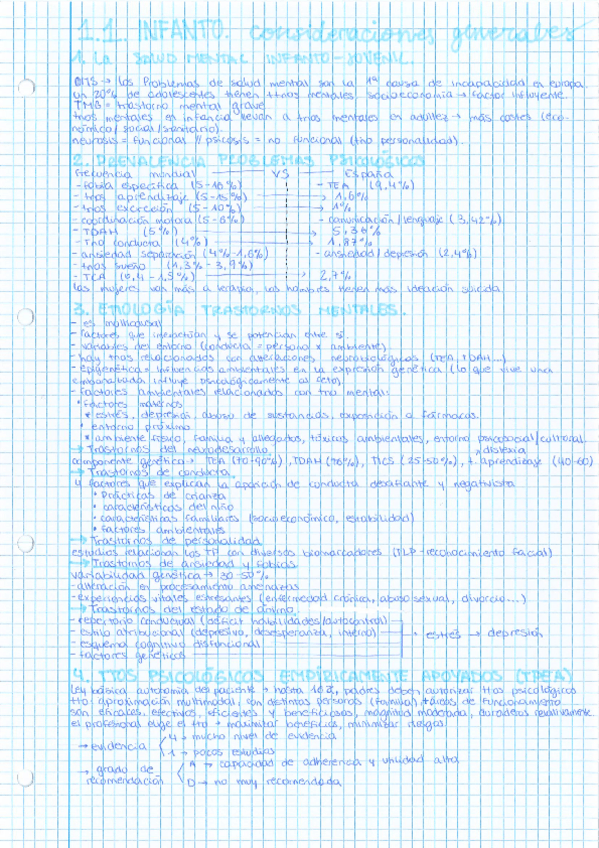 1.1. INFANTO. consideraciones generales
1. La SALUD MENTAL INFANTO-JUVENIL.
OMS → los Problemas de salud mental son la 1ª causa de incapacidad en europa
un 20% de adolescentes tienen ttnos mentales. socioeconomía → factor influyente.
TMG = trastorno mental grave
tnos mentales en infancia llevan a tnos mentales en adultez → más costes (eco-
nómico/social/sanitario).
neurosis = funcional // psicosis = no funcional (tno personalidad).
2. PREVALENCIA PROBLEMAS PSICOLÓGICOS
frecuencia mundial VS España
- fobia específica (5-10%) - TEA (9,4%)
- tnos aprendizaje (5-15%) → 1,6%
- tnos excreción (5-10%) → 1%
- coordinación motora (5-6%) - comunicación/lenguaje (3,42%)
- TDAH (5%) → 5,36%
- Tno conducta (4%) → 1,87%
- ansiedad separación (4%-1,6%) - ansiedad/depresión (2,4%)
- tnos sueño (1,3%-3,9%)
- TCA (0,4-1,5%) → 2,7%
las mujeres van más a terapia, los hombres tienen más ideación suicida
3. ETIOLOGÍA TRASTORNOS MENTALES.
- es multicausal
- factores que interactúan y se potencian entre sí.
- variables del entorno (conducta = persona x ambiente).
- hay tnos relacionados con alteraciones neurobiológicas (TEA, TDAH...)
- epigenética = influencias ambientales en la expresión genética (lo que vive una
embarazada influye psicológicamente al feto).
- factores ambientales relacionados con tno mental:
• factores maternos
* estrés, depresión, abuso de sustancias, exposición a fármacos.
• entorno próximo
* ambiente físico, familia y allegados, tóxicos ambientales, entorno psicosocial/cultural.
→ Trastornos del neurodesarrollo. dislexia
componente genético → TEA (70-90%), TDAH (76%), TICS (25-50%), t. aprendizaje (40-60)
→ Trastornos de conducta.
4 factores que explican la aparición de conducta desafiante y negativista
• Prácticas de crianza
• características del niño
• características familiares (socioeconómico, estabilidad)
• factores ambientales
→ Trastornos de personalidad.
estudios relacionan los TP con diversos biomarcadores (TLP - reconocimiento facial)
→ Trastornos de ansiedad y fobias.
variabilidad genética → 30-50%
- alteración en procesamiento amenazas
- experiencias vitales estresantes (enfermedad crónica, abuso sexual, divorcio...)
→ Trastornos del estado de ánimo.
- repertorio conductual (déficit habilidades/autocontrol)
- estilo atribucional (depresivo, desesperanza, interno) estrés → depresión
- esquema cognitivo disfuncional
- factores genéticos
4. TTOS PSICOLÓGICOS EMPÍRICAMENTE APOYADOS (TPEA)
Ley básica autonomía del paciente → hasta 18, padres deben autorizar ttos psicológicos
tto: aproximación multimodal, con distintas personas (familia) + áreas de funcionamiento
son eficaces, efectivos, eficientes y beneficiosos, magnitud moderada, duraderos relativamente.
es profesional elige el tto → maximizar beneficios, minimizar riesgos.
→ evidencia 4 → mucho nivel de evidencia
1 → pocos estudios
→ grado de recomendación A → capacidad de adherencia y utilidad alta.
D → no muy recomendada